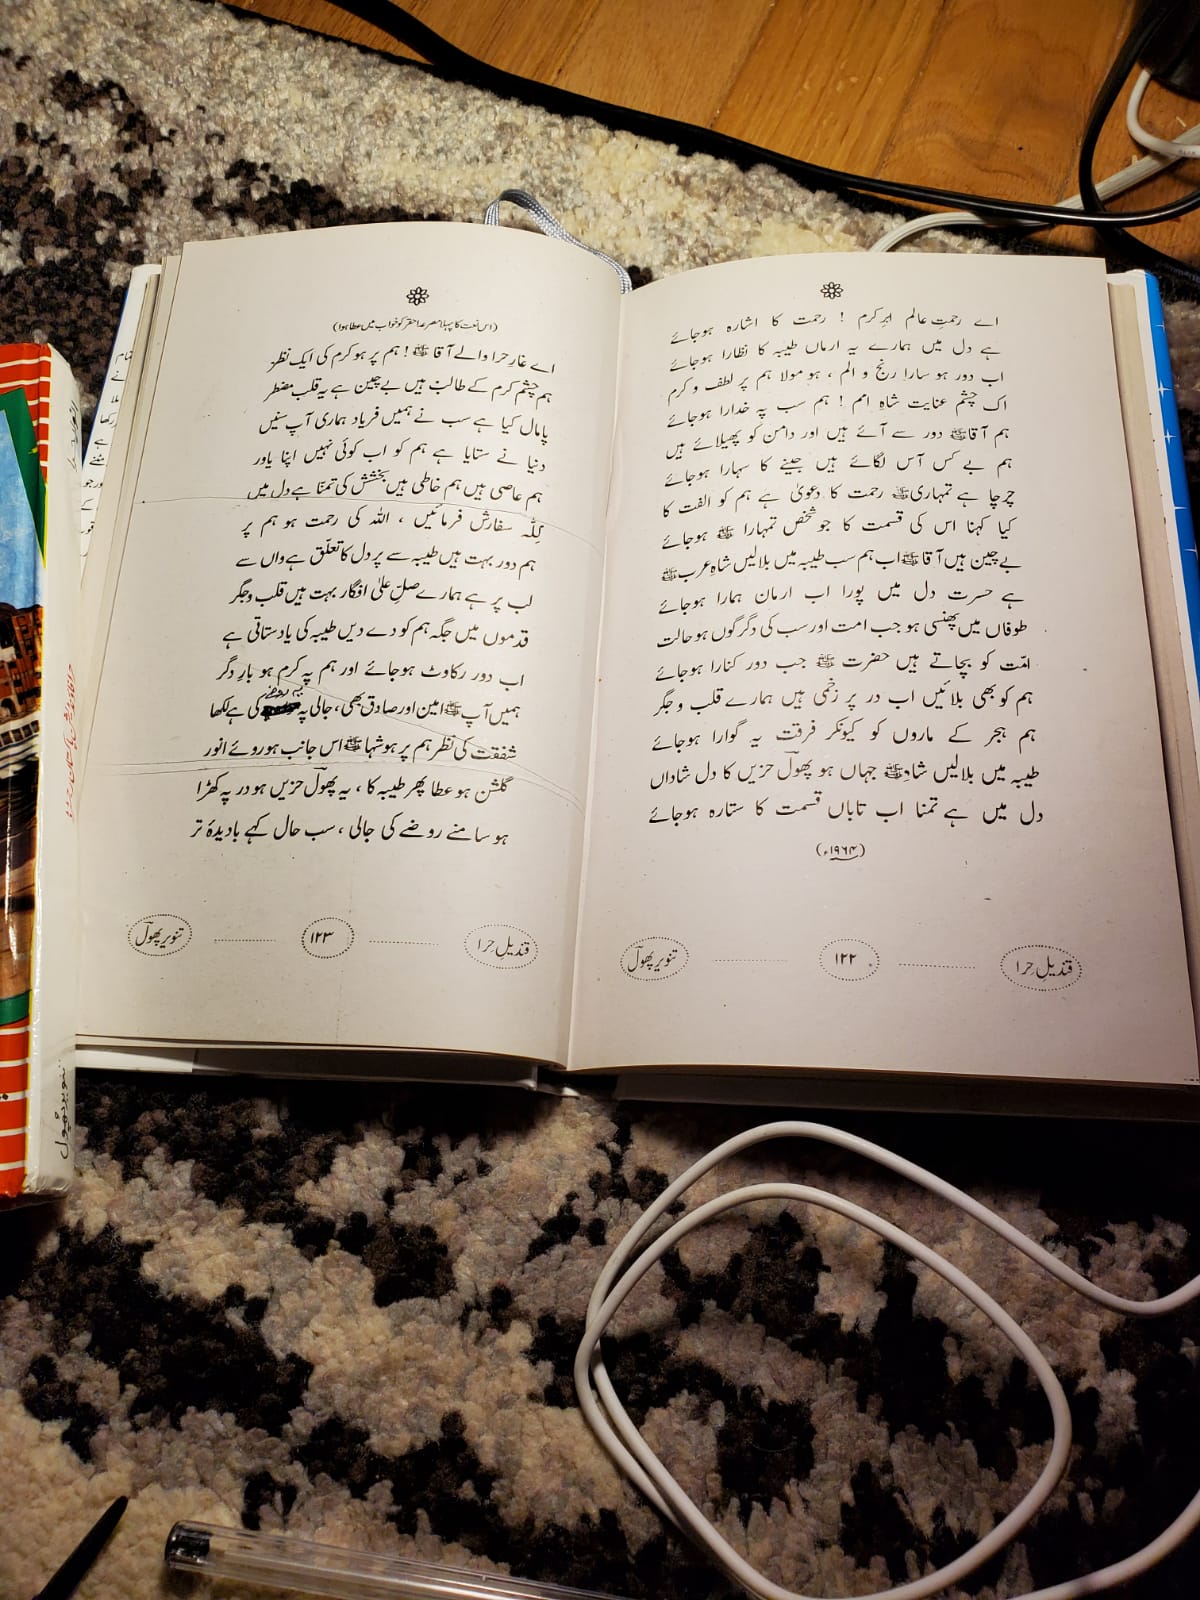 اے رحمتِ عالم ابرِ کرم ! رحمت کا اشارہ ہوجائے
ہے دل میں ہمارے یہ ارماں طیبہ کا نظارا ہوجائے
اب دور ہو سارا رنج و الم ، ہو مولا ہم پر لطف و کرم
اک چشمِ عنایت شاہِ امم ! ہم سب پہ خدارا ہوجائے
ہم آقا ﷺ دور سے آئے ہیں اور دامن کو پھیلائے ہیں
ہم بے کس آس لگائے ہیں جینے کا سہارا ہوجائے
چرچا ہے تمہاری ﷺ رحمت کا دعویٰ ہے ہم کو الفت کا
کیا کہنا اس کی قسمت کا جو شخص تمہارا ﷺ ہوجائے
بے چین ہیں آقا ﷺ اب ہم سب طیبہ میں بلالیں شاہِ عرب ﷺ
ہے حسرت دل میں پورا اب ارمان ہمارا ہوجائے
طوفاں میں پھنسی ہو جب امت اور سب کی دگرگوں ہو حالت
امّت کو بچاتے ہیں حضرت ﷺ جب دور کنارا ہوجائے
ہم کو بھی بلائیں اب در پر زخمی ہیں ہمارے قلب و جگر
ہم ہجر کے ماروں کو کیونکر فرقت یہ گوارا ہوجائے
طیبہ میں بلالیں شاہ ﷺ جہاں ہو پھولؔ حزیں کا دل شاداں
دل میں ہے تمنا اب تاباں قسمت کا ستارہ ہوجائے
(۱۹۶۴ء)
قندیلِ حرا ۱۲۲ تنویر پھولؔ
(اس نعت کا پہلا مصرعہ احقر کو خواب میں عطا ہوا)
اے غارِ حرا والے آقا ﷺ ! ہم پر ہو کرم کی ایک نظر
ہم چشمِ کرم کے طالب ہیں بے چین ہے یہ قلبِ مضطر
پامال کیا ہے سب نے ہمیں فریاد ہماری آپ سنیں
دنیا نے ستایا ہے ہم کو اب کوئی نہیں اپنا یاور
ہم عاصی ہیں ہم خاطی ہیں بخشش کی تمنّا ہے دل میں
لِلّٰہ سفارش فرمائیں ، اللہ کی رحمت ہو ہم پر
ہم دور بہت ہیں طیبہ سے پر دل کا تعلّق ہے واں سے
لب پر ہے ہمارے صلِّ علیٰ افگار بہت ہیں قلب و جگر
قدموں میں جگہ ہم کو دے دیں طیبہ کی یاد ستاتی ہے
اب دور رکاوٹ ہوجائے اور ہم پہ کرم ہو بارِ دگر
ہیں آپ ﷺ امین اور صادق بھی ، جالی پہ کی ہے لکھا
شفقت کی نظر ہم پر ہو شہا ﷺ اس جانب ہو روئے انور
گلشن ہو عطا پھر طیبہ کا ، یہ پھولؔ حزیں ہو در پہ کھڑا
ہو سامنے روضے کی جالی ، سب حال کہے بادیدۂ تر
قندیلِ حرا ۱۲۳ تنویر پھولؔ
تنویر پھول